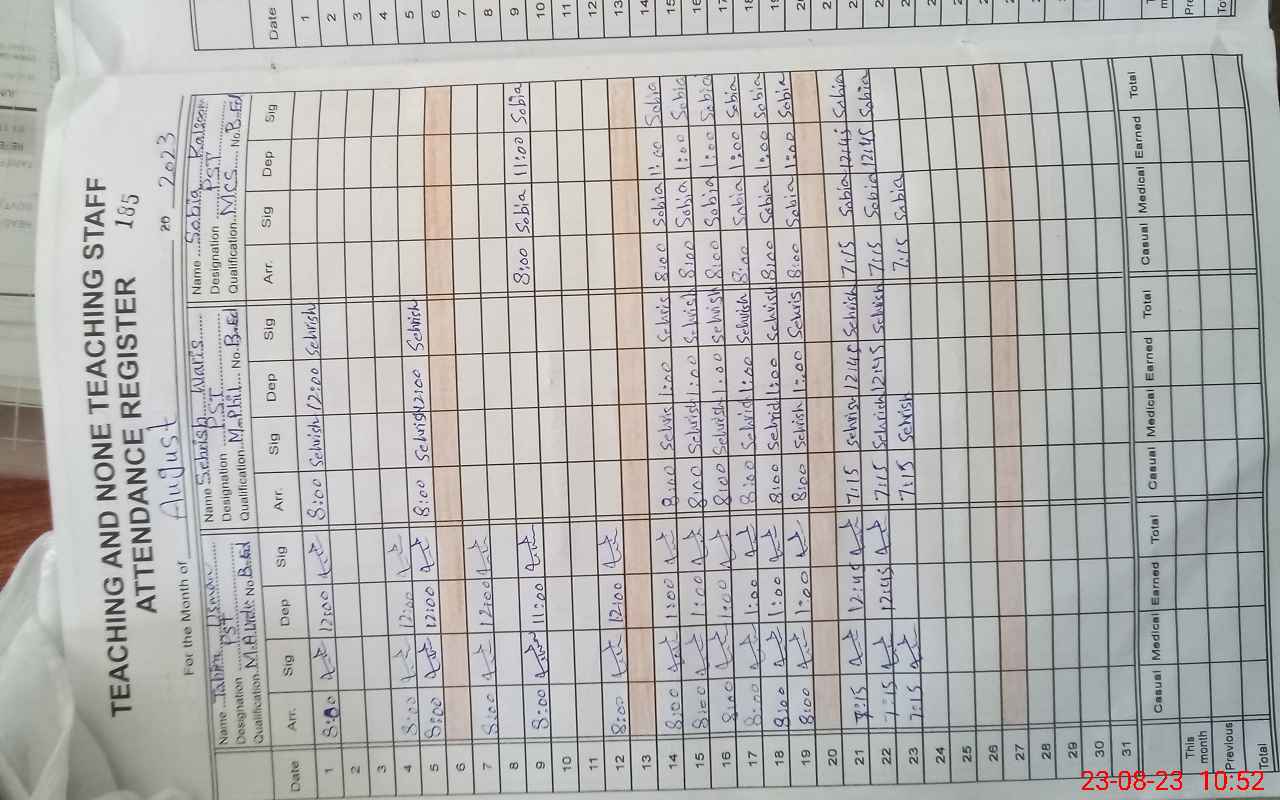 TEACHING AND NONE TEACHING STAFF
ATTENDANCE REGISTER 185
For the Month of August 20 2023
Name Tahira Usman Name Sehrish Waris Name Sobia Kalsoom
Designation PST Designation PST Designation PST
Qualification No B.Ed Qualification M.Phil No B.Ed Qualification MCS No B.Ed
Date Arr. Sig Dep Sig Arr. Sig Dep Sig Arr. Sig Dep Sig
1 8:00 12:00 8:00 Sehrish 12:00 Sehrish
2
3
4 8:00 12:00
5 8:00 12:00 8:00 Sehrish 12:00 Sehrish
6
7 8:00 12:00
8
9 8:00 11:00 8:00 Sobia 11:00 Sobia
10
11
12 8:00 12:00
13
14 8:00 1:00 8:00 Sehris 1:00 Sehris 8:00 Sobia 1:00 Sobia
15 8:00 1:00 8:00 Sehrish 1:00 Sehrish 8:00 Sobia 1:00 Sobia
16 8:00 1:00 8:00 Sehrish 1:00 Sehrish 8:00 Sobia 1:00 Sobia
17 8:00 1:00 8:00 Sehrish 1:00 Sehrish 8:00 Sobia 1:00 Sobia
18 8:00 1:00 8:00 Sehrish 1:00 Sehrish 8:00 Sobia 1:00 Sobia
19 8:00 1:00 8:00 Sehrish 1:00 Sehris 8:00 Sobia 1:00 Sobia
20
21 7:15 12:45 7:15 Sehrish 12:45 Sehrish 7:15 Sobia 12:45 Sobia
22 7:15 12:45 7:15 Sehrish 12:45 Sehrish 7:15 Sobia 12:45 Sobia
23 7:15 7:15 Sehrish 7:15 Sobia
24
25
26
27
28
29
30
31
Casual Medical Earned Total Casual Medical Earned Total Casual Medical Earned Total
This month
Previous
Total
Date
1
2
3
4
5
6
7
8
9
10
11
12
13
14
15
16
17
18
23-08-23 10:52